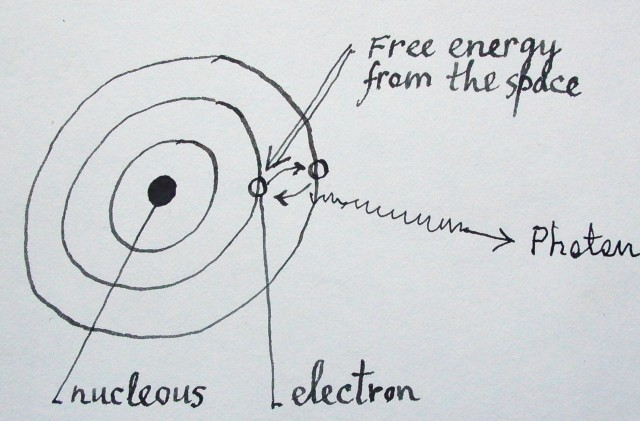 Free energy
from the space
Photon
nucleous
electron